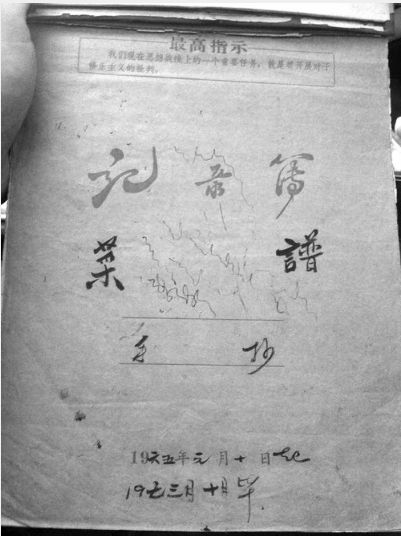 最高指示
我们现在思想战线上的一个重要任务,就是要开展对于
修正主义的批判。
记录簿
菜譜
手抄
19六五年元月十日起
19七三月十日毕